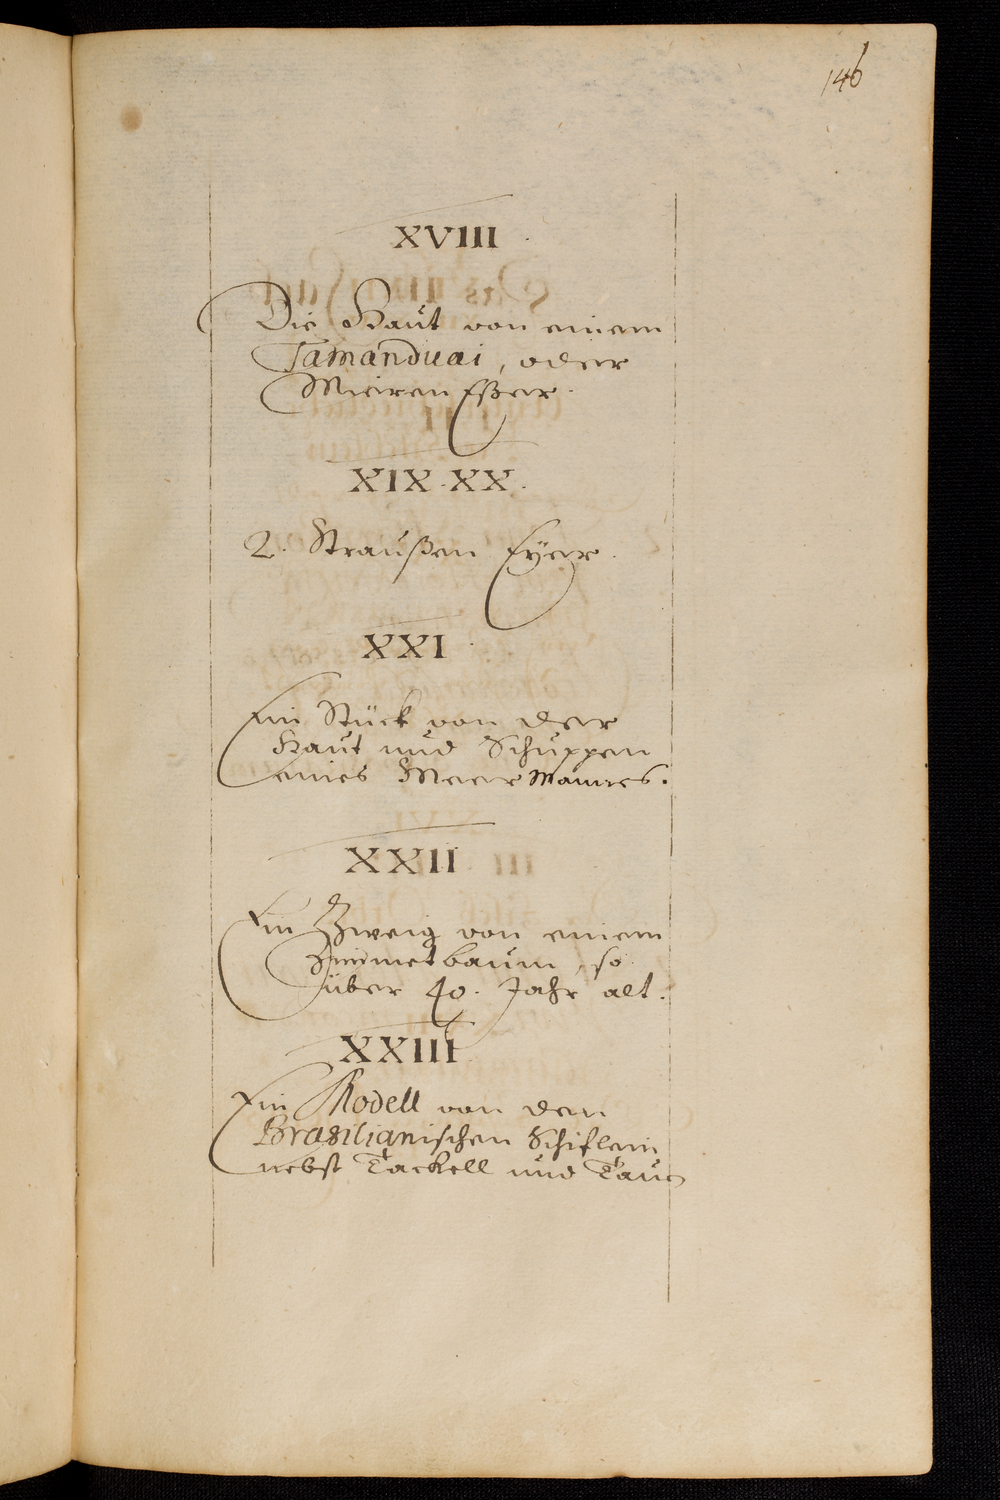 146
XVIII.
Die Haut von einem
Tamanduai, oder
Mieren Eßer.
XIX. XX.
2. Straußen Eyer.
XXI.
Ein Stück von der
Haut und Schuppen
eines Meer Mannes.
XXII.
Ein Zweig von einem
Zimmetbaum, so
über 40. Jahr alt.
XXIII
Ein Modell von den
Brasilianischen Schiflein
nebst Tackell und Tau